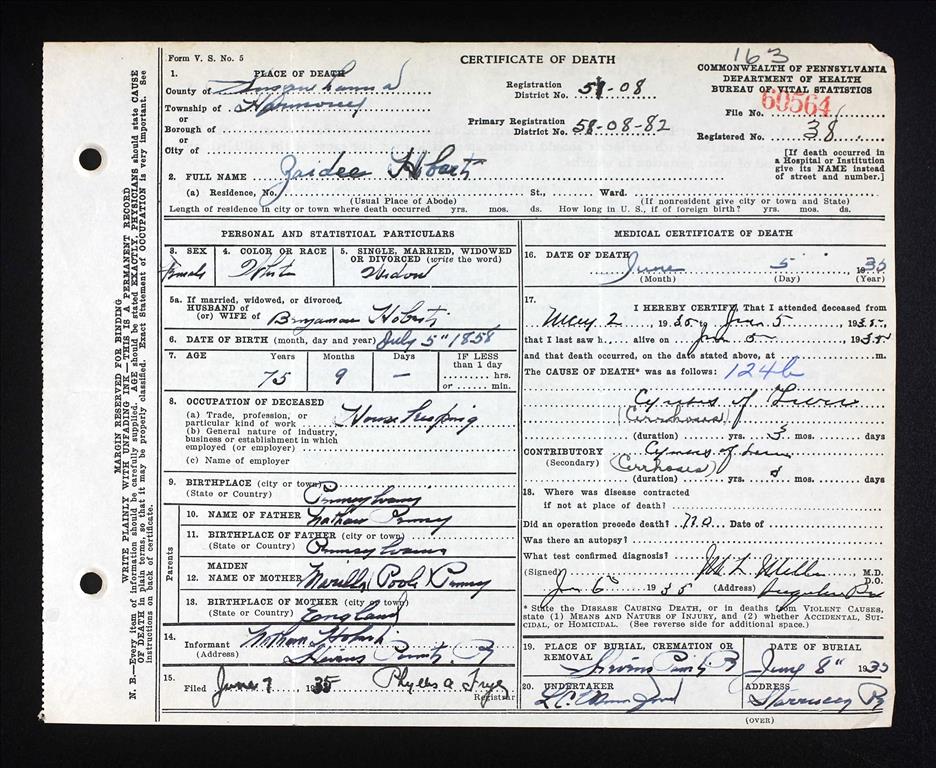 163
Form V. S. No. 5
CERTIFICATE OF DEATH
COMMONWEALTH OF PENNSYLVANIA
DEPARTMENT OF HEALTH
BUREAU OF VITAL STATISTICS
1. PLACE OF DEATH
County of Susquehanna
Township of Harmony
or
Borough of
or
City of
Registration District No. 58-08
Primary Registration District No. 58-08-82
File No. 60564
Registered No. 38
[If death occurred in a Hospital or Institution give its NAME instead of street and number.]
2. FULL NAME Zaidee Hobart
(a) Residence, No. St., Ward.
(Usual Place of Abode) (If nonresident give city or town and State)
Length of residence in city or town where death occurred yrs. mos. ds. How long in U. S., if of foreign birth? yrs. mos. days
PERSONAL AND STATISTICAL PARTICULARS
3. SEX Female
4. COLOR OR RACE White
5. SINGLE, MARRIED, WIDOWED OR DIVORCED (write the word) Widow
5a. If married, widowed, or divorced
HUSBAND of
(or) WIFE of Benjaman Hobart
6. DATE OF BIRTH (month, day and year) July 5" 1858
7. AGE Years Months Days IF LESS than 1 day
hrs.
or min.
75 9 –
8. OCCUPATION OF DECEASED
(a) Trade, profession, or particular kind of work House keeping
(b) General nature of industry, business or establishment in which employed (or employer)
(c) Name of employer
9. BIRTHPLACE (city or town)
(State or Country) Pennsylvania
Parents
10. NAME OF FATHER Nathan
11. BIRTHPLACE OF FATHER (city or town)
(State or Country) Pennsylvania
MAIDEN
12. NAME OF MOTHER Poole
13. BIRTHPLACE OF MOTHER (city or town)
(State or Country) England
14. Informant Nathan Hobart
(Address)
15. Filed June 7 1935 Phyllis A. Frye
Registrar
MEDICAL CERTIFICATE OF DEATH
16. DATE OF DEATH
June 5 1935
(Month) (Day) (Year)
17. I HEREBY CERTIFY That I attended deceased from
May 2, 1935, to Jun 5 1935
that I last saw h alive on Jun 5 1935
and that death occurred, on the date stated above, at m.
The CAUSE OF DEATH* was as follows: 124b
of Liver
(Cirrhoses)
(duration) yrs. 3 mos. days
CONTRIBUTORY
(Secondary) (Cirrhoses)
(duration) yrs. mos. days
18. Where was disease contracted
if not at place of death?
Did an operation precede death? no Date of
Was there an autopsy?
What test confirmed diagnosis?
(Signed) Miller M.D.
D.O.
Jun 6 1935 (Address)
* State the DISEASE CAUSING DEATH, or in deaths from VIOLENT CAUSES, state (1) MEANS AND NATURE OF INJURY, and (2) whether ACCIDENTAL, SUICIDAL, or HOMICIDAL. (See reverse side for additional space.)
19. PLACE OF BURIAL, CREMATION OR REMOVAL
DATE OF BURIAL
June 8" 1935
20. UNDERTAKER
ADDRESS
(OVER)
MARGIN RESERVED FOR BINDING
WRITE PLAINLY WITH UNFADING INK—THIS IS A PERMANENT RECORD
N. B.—Every item of information should be carefully supplied. AGE should be stated EXACTLY. PHYSICIANS should state CAUSE OF DEATH in plain terms, so that it may be properly classified. Exact Statement of OCCUPATION is very important. See instructions on back of certificate.